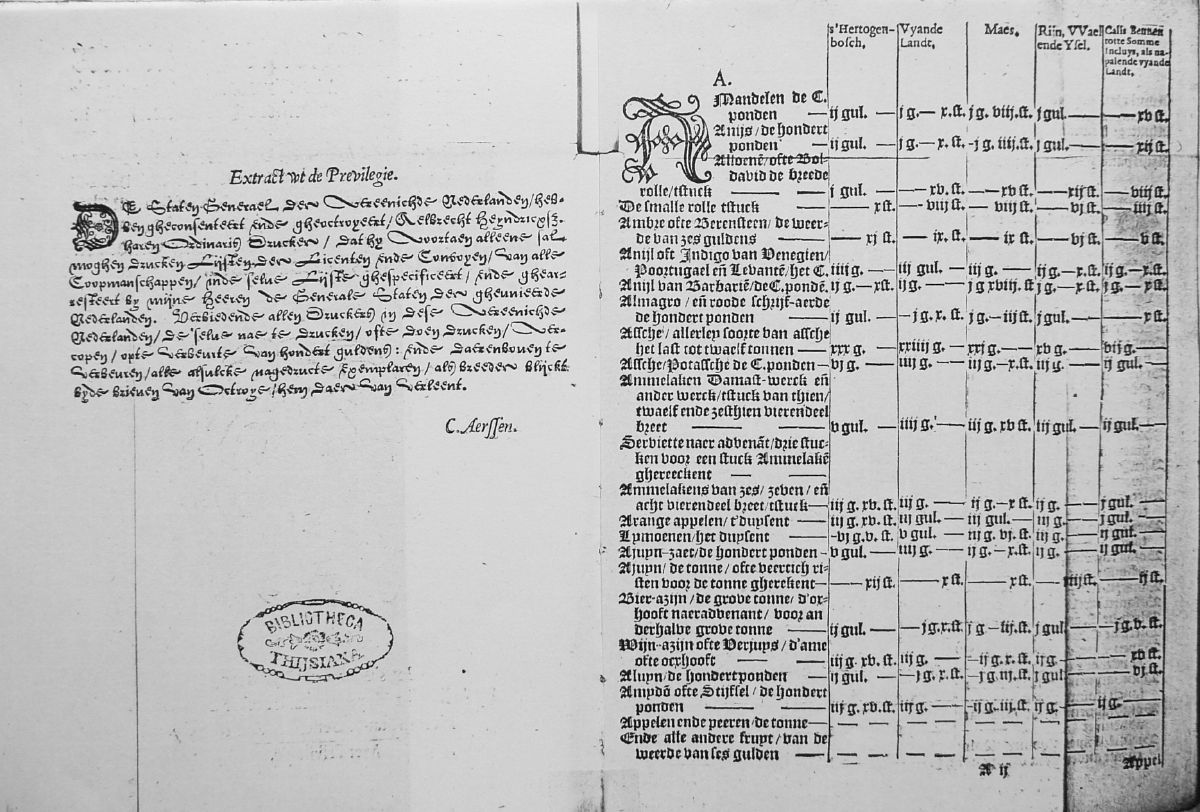 Extract wt de Previlegie.
DE Staten Generael der Vereenichde Nederlanden/ heb-
ben gheconsenteert ende gheoctroyeert/ Aelbrecht Heyndricxsz.
haren Ordinaris Drucker/ dat hy Voortaen alleene sal
moghen drucken Lijsten der Licenten ende Convoyen/ van alle
Coopmanschappen/ inde selve Lijste ghespecificeert/ ende ghear-
resteert by mijne Heeren de Generale Staten der gheunieerde
Nederlanden. Verbiedende allen Druckers in dese Vereenichde
Nederlanden/ de selve nae te drucken/ ofte doen drucken/ Ver-
copen/ opte verbeurte van hondert guldens: ende daerenboven te
verbeuren/ alle alsulcke nagedructe Exemplaren/ als breeder blijckt
byde brieven van Octroye/ hem daer van verleent.
C. Aerssen.
BIBLIOTHECA
THIJSIANA
s'Hertogen-bosch, Vyande Landt, Maes, Rijn, VVael ende Ysel. Casis Bennen totte Somme incluys, als na-palende vyande Landt.
A.
AMandelen de C.
ponden — ij gul. — j g.— x.st. j g. viij.st. j gul. — — xv st.
Anijs/de hondert
ponden — ij gul. — j g.— x. st. -j g. iiij.st. j gul. — — xij st.
ofte Bol-
david de breede
rolle/tstuck — — j gul. — — xv. st. — xv st. — xij st. — viij st.
De smalle rolle tstuck — — x st. — viij st. — viij st. — vj st. — iiij st.
Ambre ofte Berensteen/de weer-
de van zes guldens — — xj st. — ix. st. — ix st. — vj st. — v st.
Anijl oft Indigo van Venegien/
Poortugael eñ Levantē/het C. iiij g. — iij gul. — iij g. — ij g.—x.st. ij g.—x.st.
Anijl van Barbariē/de C.pondē. ij g.—x.st. ij g. — j g xviij.st j g.—x.st. j g. —
Almagro/ eñ roode schrijf-aerde
de hondert ponden — ij gul — — j g. x st. j g.—iij st. j gul. — — x st.
Assche/ allerley soorte van assche
het last tot twaelf tonnen — xxx g. — xxiiij g.— xxj g.— xv g. — vij g.—
Assche/Potassche de C.ponden— vj g.— iiij g. — iij g.—x.st. iij g. — ij gul. —
Ammelaken Damast-werck eñ
ander werck/tstuck van thien/
twaelf ende zesthien vierendeel
breet — — v gul. — iiij g. — iij g. xv st. iij gul. — ij gul. —
Serviette naer advenāt/drie stuc-
ken voor een stuck Ammelakē
ghereeckent — —
Ammelakens van zes/ zeven/ eñ
acht vierendeel breet/tstuck— iij g. xv. st. iij g. — ij g.—x st. ij g. — j gul. —
Arange appelen/ t'duysent — iij g. xv. st. iij gul. — iij gul. — iij g. — j gul. —
Lymoenen/het duysent — -vj g.v. st. v gul. — iiij g. vj. st. iij g. — ij gul. —
Ajuyn-zaet/de hondert ponden - v gul. — iiij g. — ij g.—x.st. ij g. — ij gul —
Ajuyn/ de tonne/ ofte veertich ri-
sten voor de tonne gherekent— — xij st. — x st. — x st. — iiij st. — ij st.
Bier-azijn/de grove tonne/ d'ox-
hooft naeradvenant/ voor an
derhalve grove tonne — ij gul. — — j g.x.st. j g —iij.st. j gul — j g.v. st.
Wijn-azijn ofte Verjuys/ d'ame
ofte ocxhooft — — iij g. xv. st. iij g. — —ij g.x.st. ij g. — — xv st.
Aluyn/de hondert ponden — ij gul. — — j g. x. st. — j g.iij.st. j gul — — vj st.
Amydō ofte Stijfsel/de hondert
ponden — — iij g. xv.st. iij g.— —ij g. iij.st. ij g.— ij g.—
Appelen ende peeren/de tonne—
Ende alle andere fruyt/ van de
weerde van ses gulden —
A ij
Appel